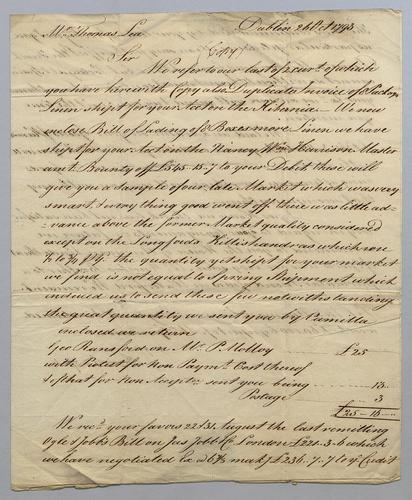 Mr. Thomas Lea Dublin 24 Oct 1793
Sir (Copy)
We refer to our last of 2 curt. of which
you have herewith Copy also Duplicate Invoice of Package
Linen shipt for your Acct on the Hibernia We now
inclose Bill of Lading of Boxes more Linen we have
shipt for your Acct on the Nancy Wm. Harrison Master
amt. Bounty off £545.15.7 to your Debit these will
give you a Sample of our late Market which was very
smart & every thing good went off there was little ad-
vance above the former Market quality considered
except on the Longfords & as which rose
the quantity yet shipt for your market
we find is not equal to Spring Shipment which
induced us to send these few notwithstanding
the great quantity we sent you by Camilla
inclosed we return
Geo Ransford on Mr. P. Molloy £25
with Protest for Non Paymt. Cost thereof
& of that for Non Accepte. sent you being 13
Postage 3
£25-16-
We recd. your favors 22 & 31 August the last remitting
Bill on Jas Jobb London £221.3.6 which
we have negotiated Ex a 6⅞ makg £236.7.7 to yr Credit